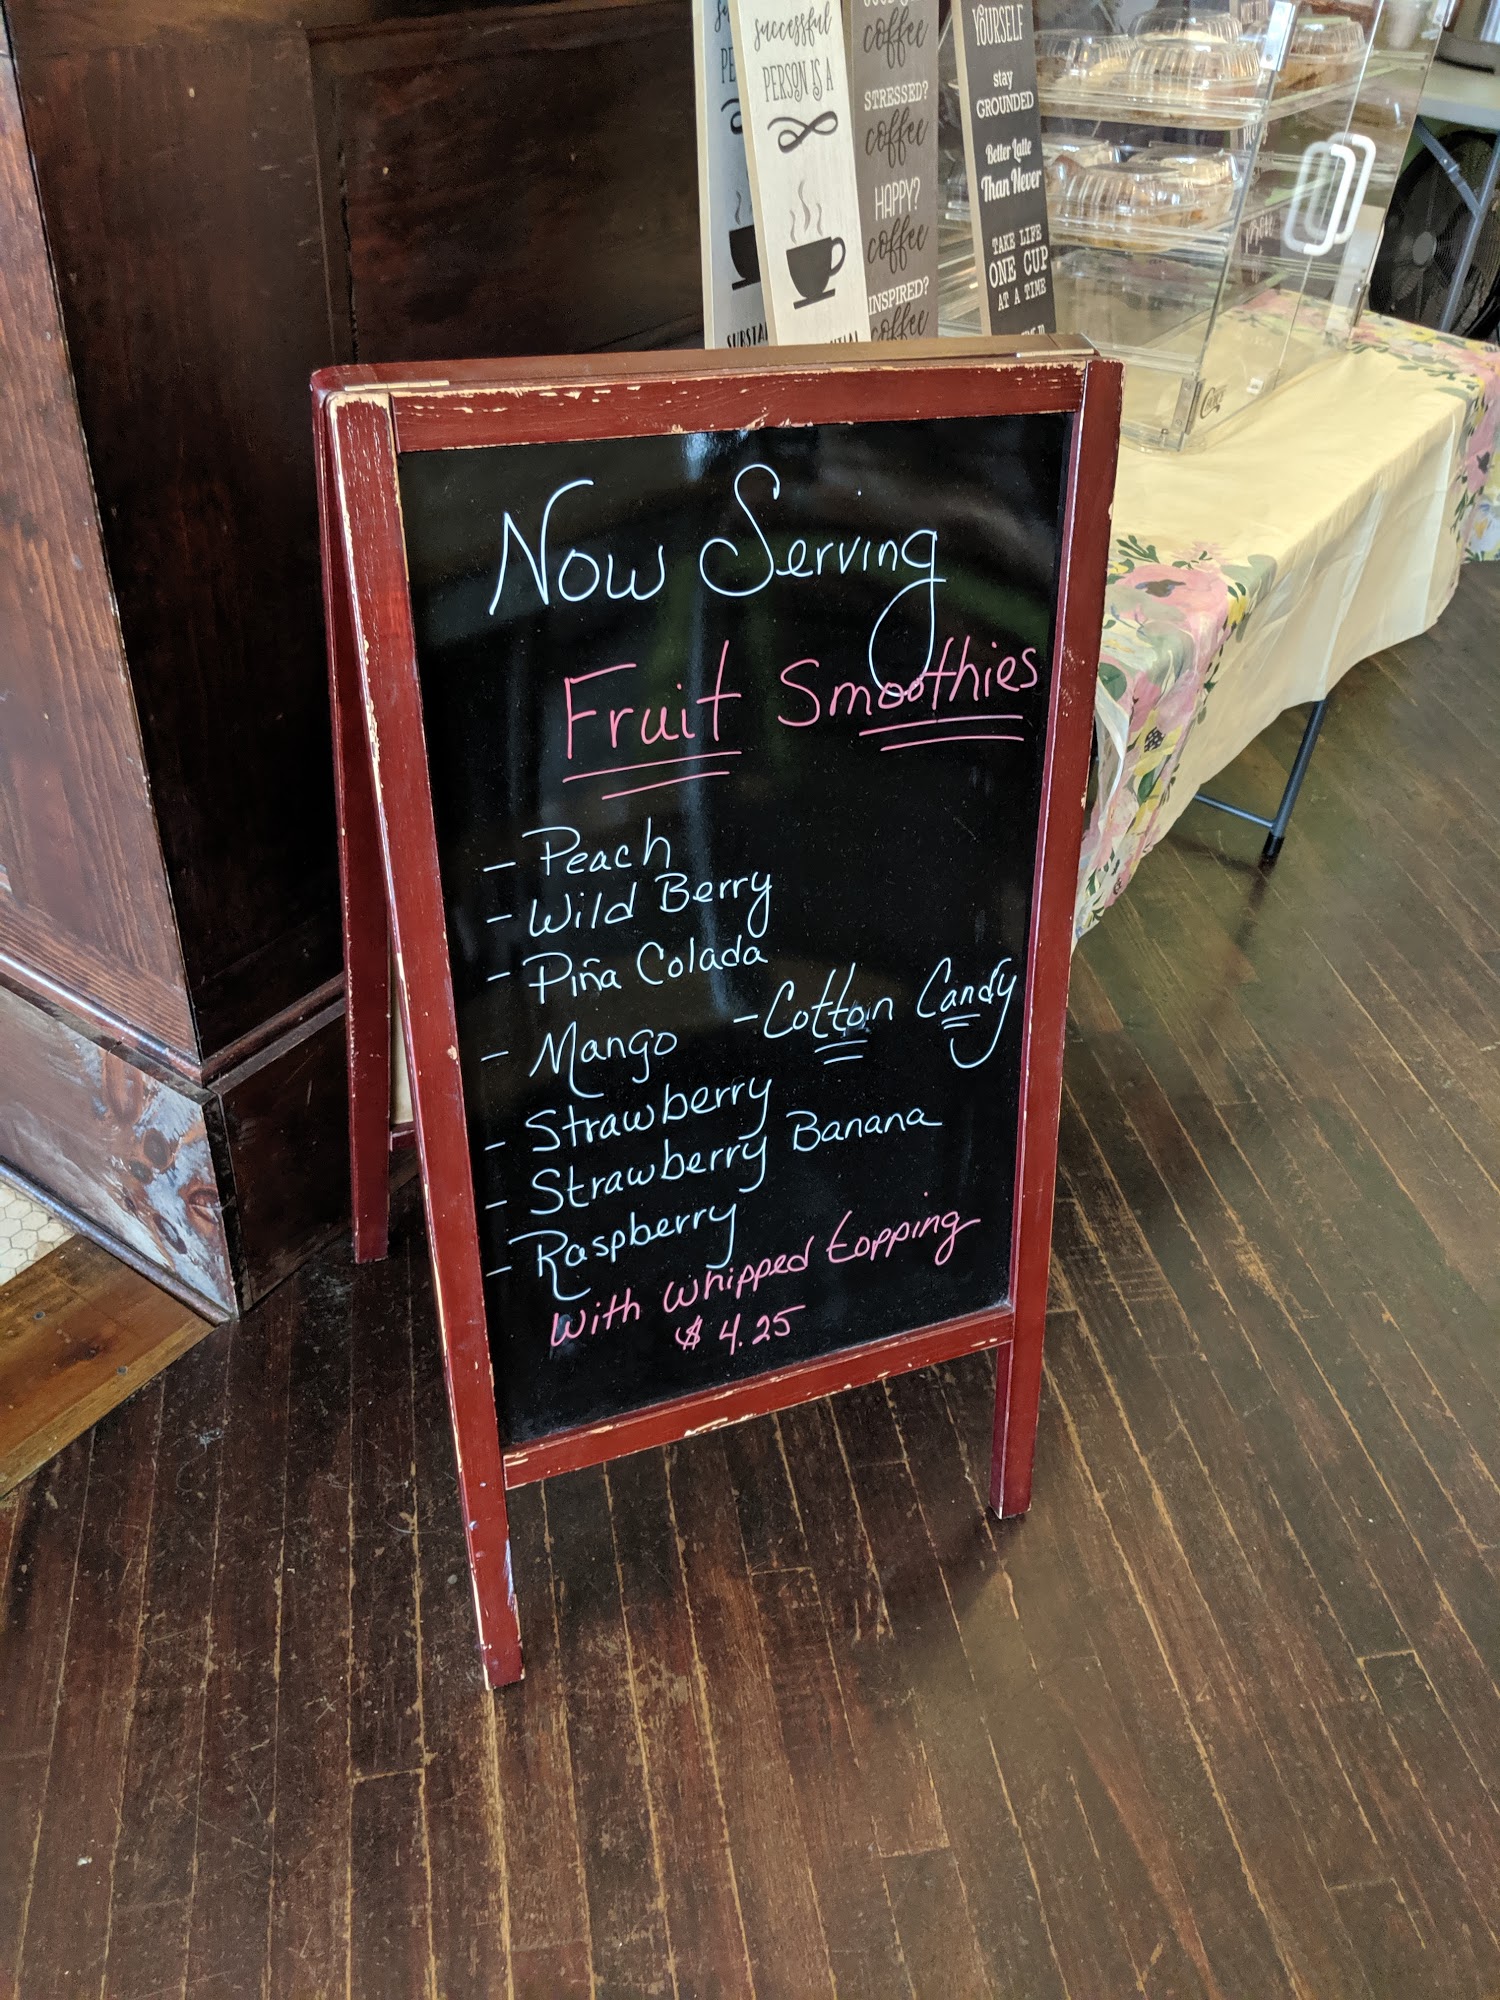 successful
PERSON IS A
coffee
STRESSED?
coffee
HAPPY?
coffee
INSPIRED?
coffee
YOURSELF
stay
GROUNDED
Better Latte
Than Never
TAKE LIFE
ONE CUP
AT A TIME
Now Serving
Fruit Smoothies
- Peach
- Wild Berry
- Piña Colada
- Mango - Cotton Candy
- Strawberry
- Strawberry Banana
- Raspberry
With whipped topping
$4.25